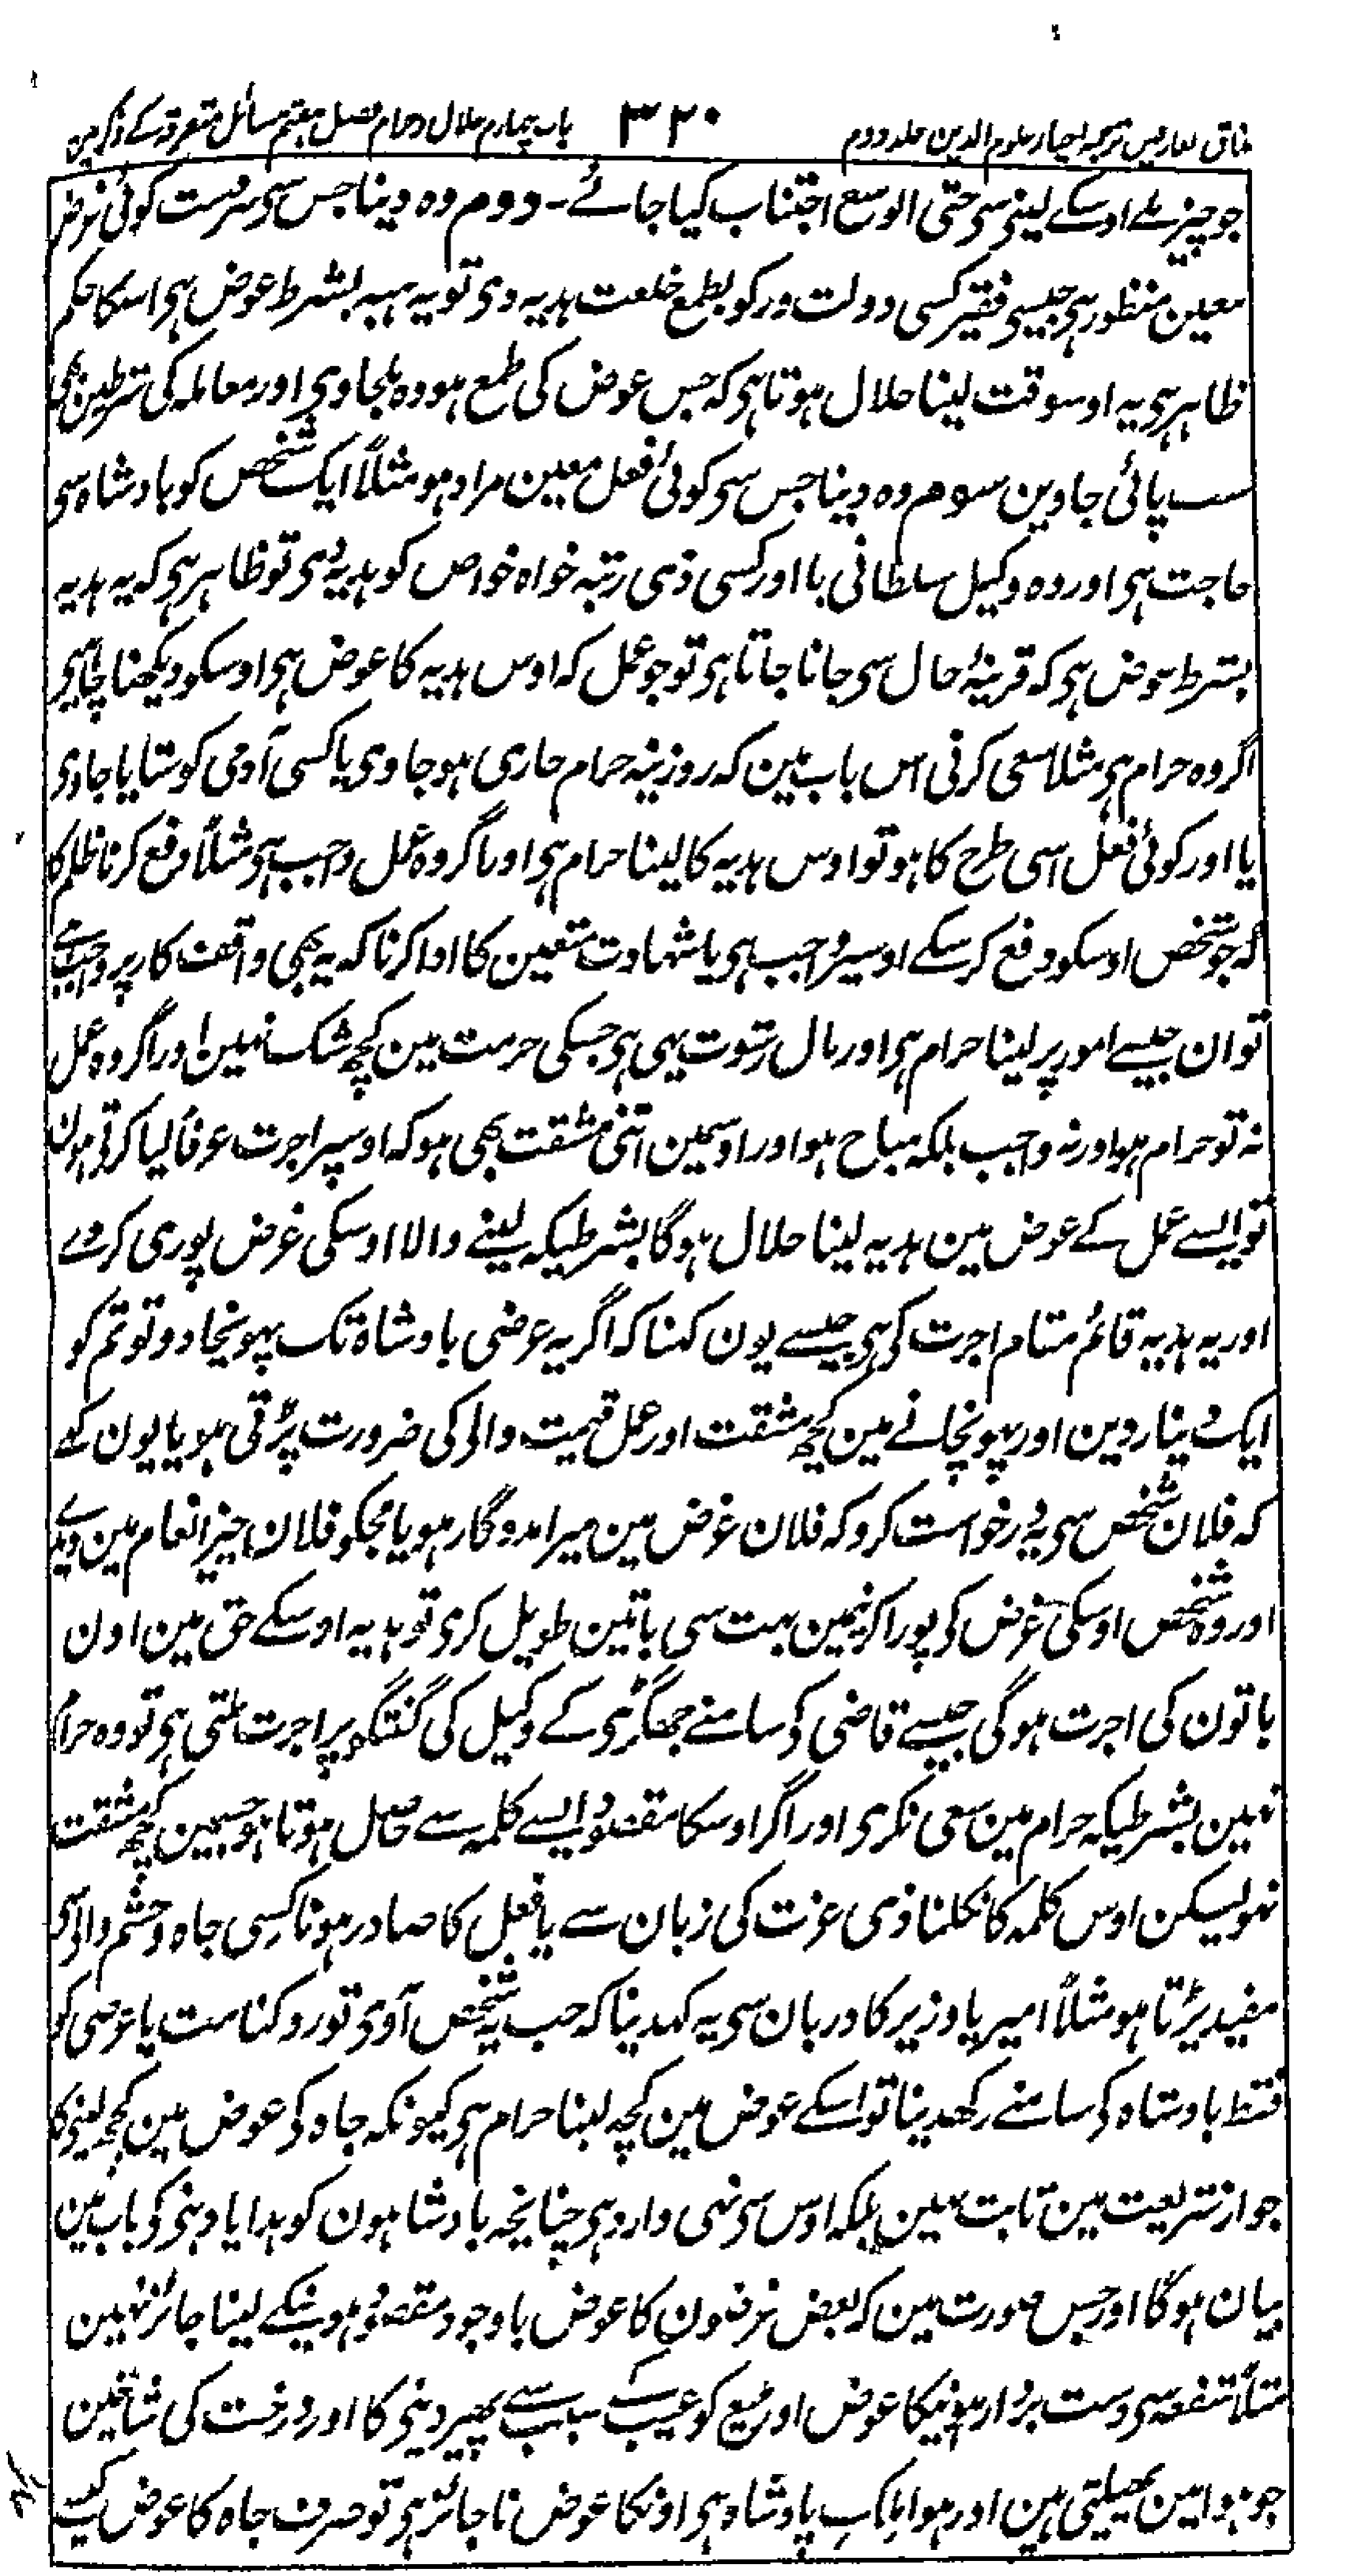 مذاق العارفین ترجمہ احیاء علوم الدین جلد دوم
۳۲۰
باب چہارم حلال و حرام فصل ہفتم مسائل متفرقہ کے ذکر مین
جو چیز ملے اوسکے لینی سی حتی الوسع اجتناب کیا جائے۔ دوم وہ دینا جس سی سردست کوئی غرض
معین منظور ہی جیسی فقیر کسی دولت ور کو بطمع خلعت ہدیہ دی تو یہ ہبہ بشرط عوض ہی اسکا حکم
ظاہر ہی یہ اوسوقت لینا حلال ہوتا ہی کہ جس عوض کی طمع ہو وہ ملجاوی اور معاملہ کی شرطین بھی
سب پائی جاوین سوم وہ دینا جس سی کوئی فعل معین مراد ہو مثلاً ایک شخص کو بادشاہ سی
حاجت ہی اور وہ وکیل سلطانی یا اور کسی ذی رتبہ خواہ خواص کو ہدیہ دی تو ظاہر ہی کہ یہ ہدیہ
بشرط عوض ہی کہ قرینۂ حال سی جانا جاتا ہی تو جو عمل کہ اوس ہدیہ کا عوض ہی اوسکو دیکھنا چاہیی
اگر وہ حرام ہی مثلا سعی کرنی اس باب مین کہ روزینہ حرام جاری ہو جاوی یا کسی آدمی کو ستایا جاوی
یا اور کوئی فعل اسی طرح کا ہو تو اوس ہدیہ کا لینا حرام ہی اور اگر وہ عمل واجب ہی مثلاً دفع کرنا ظلم کا
کہ جو شخص اوسکو دفع کر سکے اوسپر واجب ہی یا شہادت متعین کا ادا کرنا کہ یہ بھی واقف کار پر واجب ہے
تو ان جیسے امور پر لینا حرام ہی اور مال رشوت یہی ہی جسکی حرمت مین کچھ شک نہین اور اگر وہ عمل
نہ تو حرام ہو اور نہ واجب بلکہ مباح ہو اور اوسمین اتنی مشقت بھی ہو کہ اوسپر اجرت عرفاً لیا کرتی ہون
تو ایسے عمل کے عوض مین ہدیہ لینا حلال ہوگا بشرطیکہ لینے والا اوسکی غرض پوری کردے
اور یہ ہدیہ قائم مقام اجرت کی ہی جیسے یون کہنا کہ اگر یہ عرضی بادشاہ تک پہونچادو تو تم کو
ایک دینار دین اور پہونچانے مین کچھ مشقت اور عمل قیمت والی کی ضرورت پڑتی ہو یا یون کہے
کہ فلان شخص سی یہ درخواست کرو کہ فلان غرض مین میرا مددگار ہو یا مجکو فلان چیز انعام مین دیدے
اور وہ شخص اوسکی غرض کی پورا کرنیمین بہت سی باتین طویل کری تو ہدیہ اوسکے حق مین اون
باتون کی اجرت ہوگی جیسے قاضی کی سامنے جھگڑی کے وکیل کی گفتگو پر اجرت ملتی ہی تو وہ حرام
نہین بشرطیکہ حرام مین سعی نکری اور اگر اوسکا مقصود ایسے کلمہ سے حاصل ہوتا ہو جسمین کچھ مشقت
نہو لیکن اوس کلمہ کا نکلنا ذی عزت کی زبان سے یا فعل کا صادر ہونا کسی جاہ و حشم والی سی
مفید پڑتا ہو مثلاً امیر یا وزیر کا دربان سی یہ کہدینا کہ جب یہ شخص آوی تو روکنا مت یا عرضی کو
فقط بادشاہ کی سامنے رکھدینا تو اسکے عوض مین کچھ لینا حرام ہی کیونکہ جاہ کی عوض مین کچھ لینی کا
جواز شریعت مین ثابت نہین بلکہ اوس سی نہی وارد ہی چنانچہ بادشاہون کو ہدایا دینی کی باب مین
بیان ہوگا اور جس صورت مین کہ بعض غرضون کا عوض باوجود مقصود ہونیکے لینا جائز نہین
مثلاً شفعہ سی دست بردار ہونیکا عوض اور مبیع کو عیب کے سبب سے پھیر دینی کا اور درخت کی شاخین
جو ہوا مین پھیلتی ہین اور ہوا ملک پادشاہ ہی اونکا عوض ناجائز ہی تو صرف جاہ کا عوض کیسے